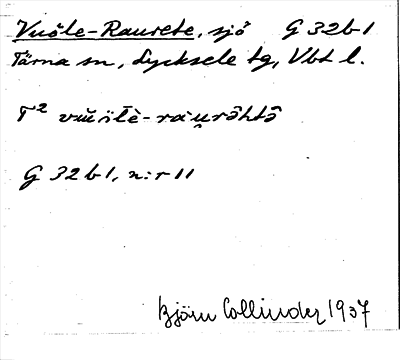 Vuåle-Raurete, sjö G 32b1
Tärna sn, Lycksele tg, Vbt l.
T²
G 32 b 1, n:r 11
Björn Collinder 1937